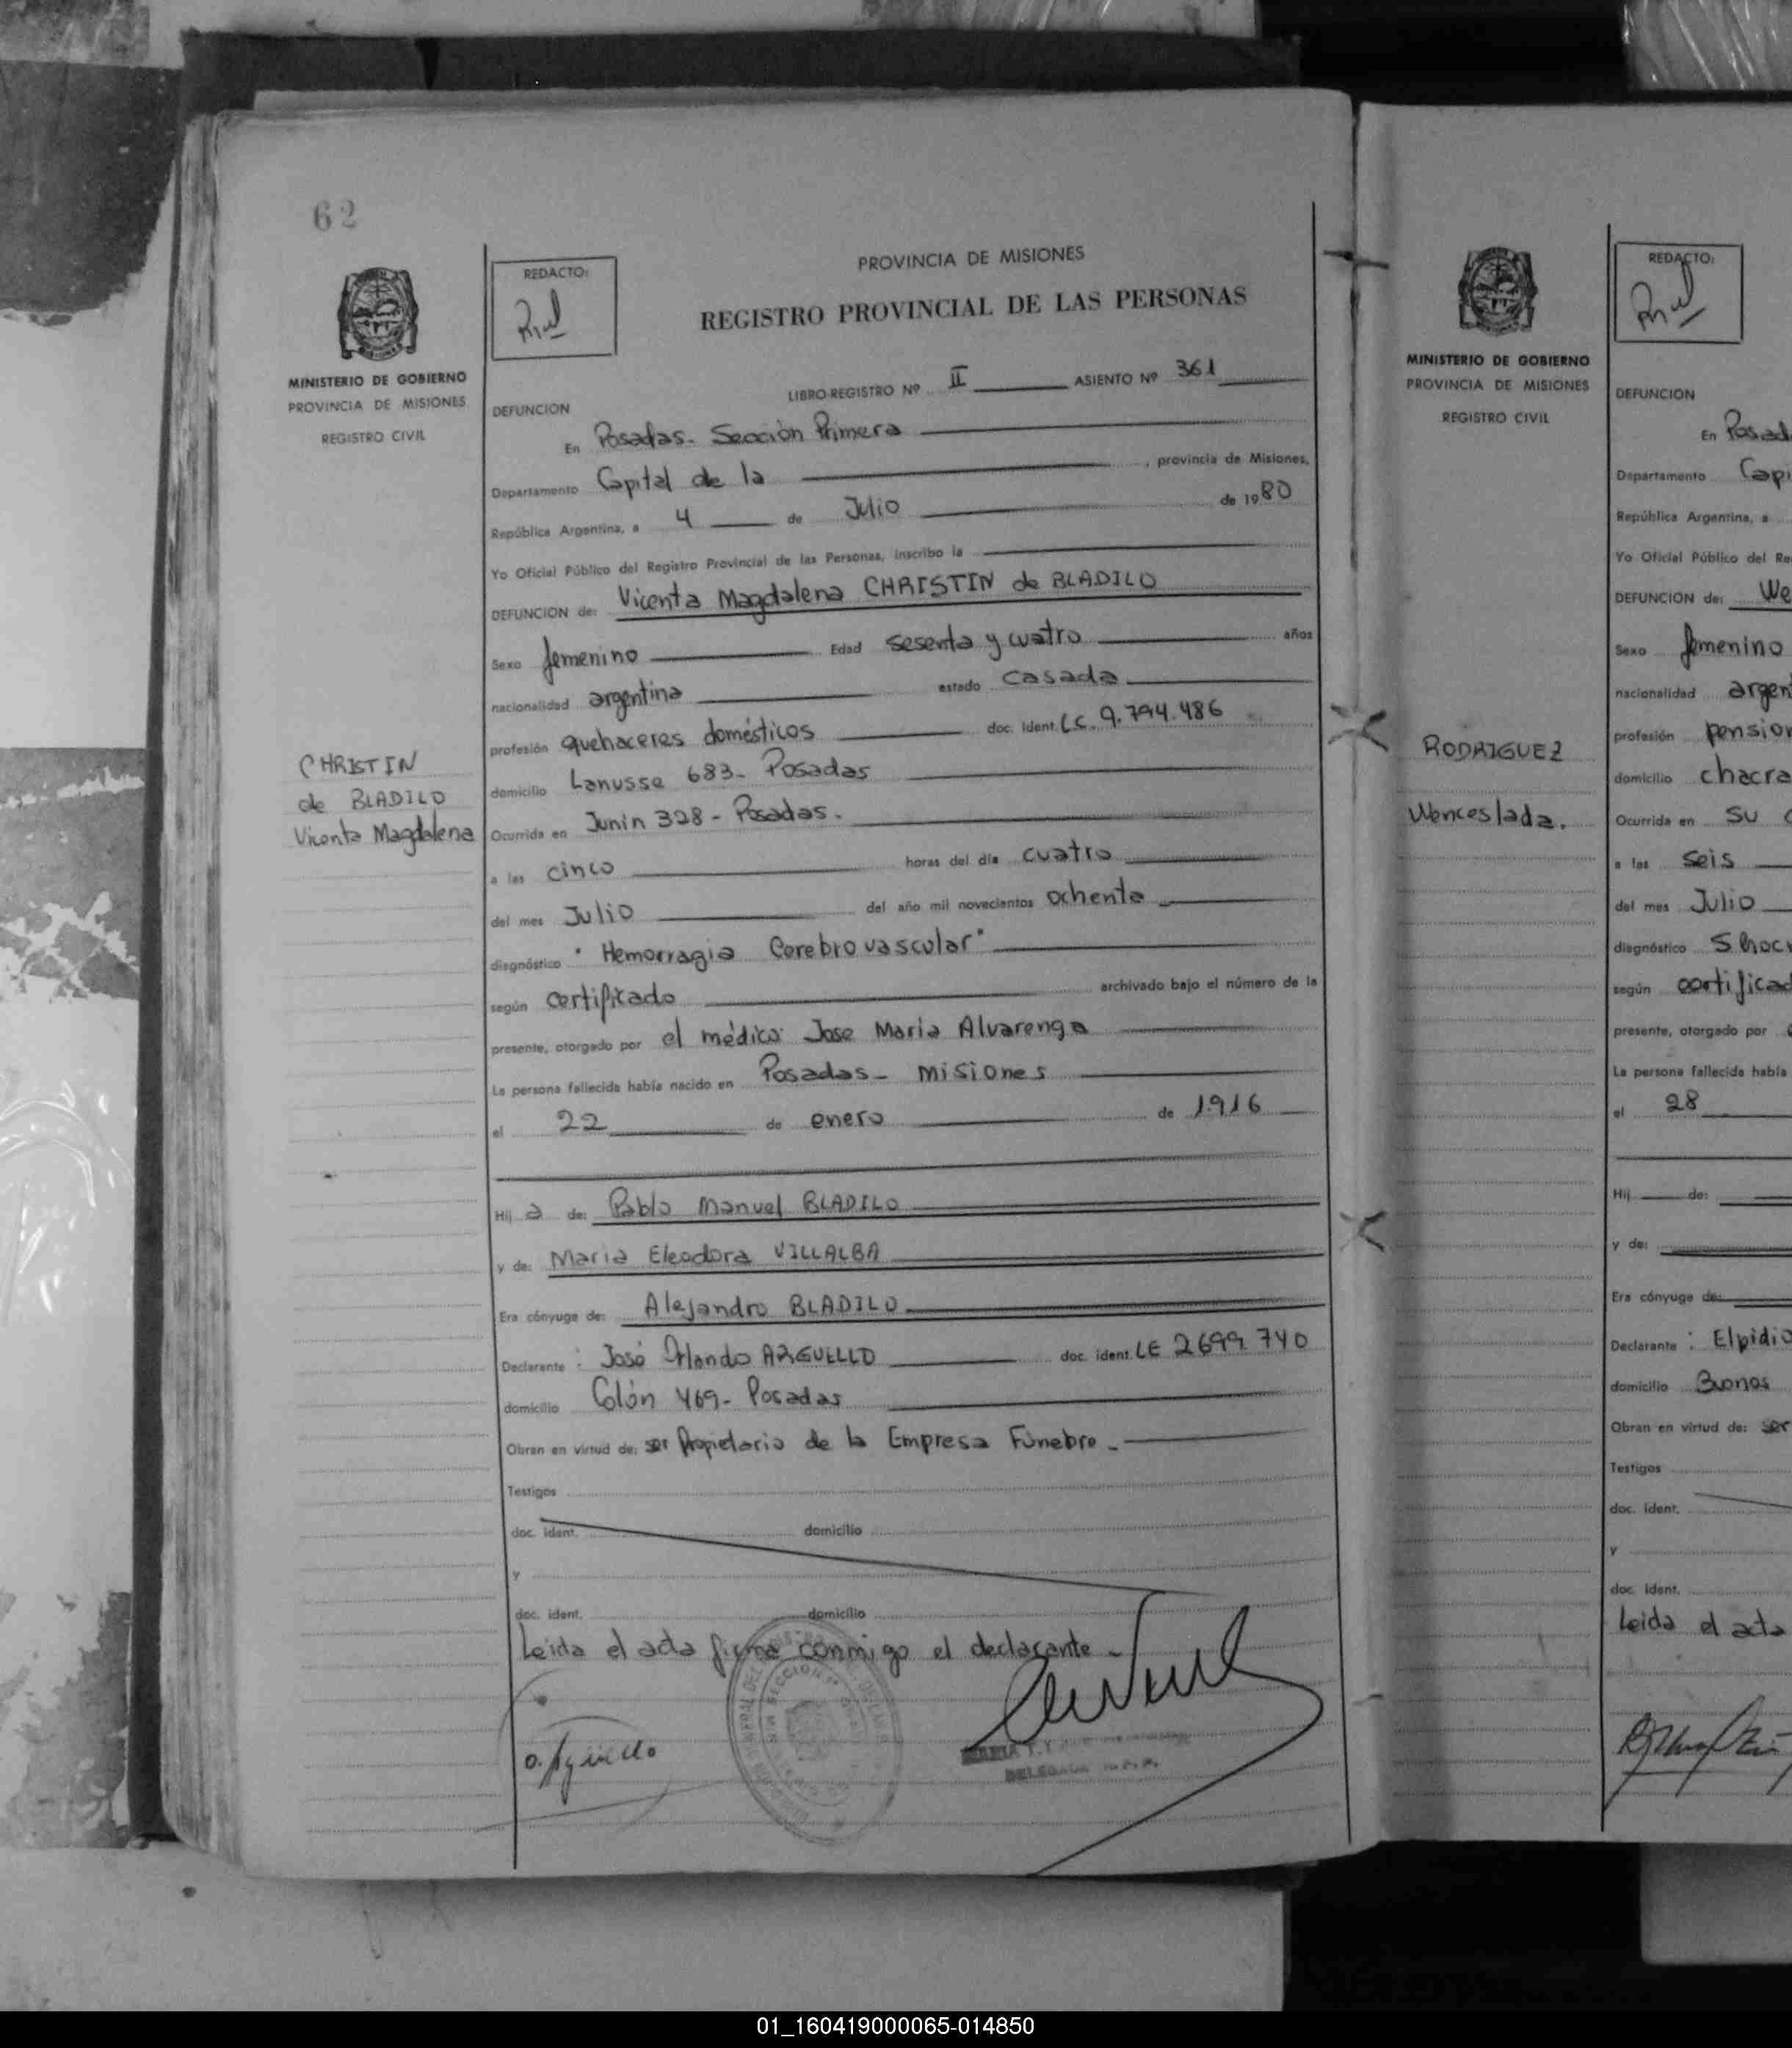 62
REDACTO:
MINISTERIO DE GOBIERNO
PROVINCIA DE MISIONES
REGISTRO CIVIL
PROVINCIA DE MISIONES
REGISTRO PROVINCIAL DE LAS PERSONAS
LIBRO-REGISTRO Nº II ASIENTO Nº 361
DEFUNCION
En Posadas- Sección Primera
Departamento Capital de la , provincia de Misiones,
República Argentina, a 4 de Julio de 1980
Yo Oficial Público del Registro Provincial de las Personas, inscribo la
DEFUNCION de: Vicenta Magdalena CHRISTIN de BLADILO
Sexo femenino Edad sesenta y cuatro años
nacionalidad argentina estado casada
profesión quehaceres domésticos doc. ident. LC. 9.794.486
domicilio Lanusse 683- Posadas
Ocurrida en Junín 328- Posadas.
a las cinco horas del día cuatro
del mes Julio del año mil novecientos ochenta
diagnóstico "Hemorragia Cerebrovascular"
según certificado archivado bajo el número de la
presente, otorgado por el médico Jose Maria Alvarenga
La persona fallecida había nacido en Posadas- Misiones
el 22 de enero de 1916
Hij a de: Pablo Manuel BLADILO
y de: Maria Eleodora VILLALBA
Era cónyuge de: Alejandro BLADILO
Declarante: José Orlando ARGUELLO doc. ident. LE 2699740
domicilio Colón 469- Posadas
Obran en virtud de: ser Propietario de la Empresa Fúnebre-
Testigos
doc. ident. domicilio
y
doc. ident. domicilio
Leida el acta firma conmigo el declarante-
CHRISTIN
de BLADILO
Vicenta Magdalena
MINISTERIO DE GOBIERNO
PROVINCIA DE MISIONES
REGISTRO CIVIL
REDACTO:
DEFUNCION
En
Departamento
República Argentina, a
Yo Oficial Público del
DEFUNCION de:
Sexo femenino
nacionalidad
profesión
domicilio chacra
Ocurrida en su
a las seis
del mes Julio
diagnóstico
según
presente, otorgado por
La persona fallecida había
el 28
Hij de:
y de:
Era cónyuge de:
Declarante: Elpidio
domicilio Buenos
Obran en virtud de: ser
Testigos
doc. ident.
y
doc. ident.
Leida el acta
RODRIGUEZ
Wenceslada.
01_160419000065-014850